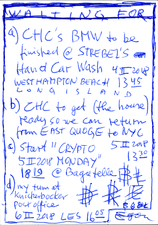 WAITING FOR
a) CHC's BMW to be
finished @ STREBEL'S
Hand Car Wash 4 II 2018
WEST HAMPTON BEACH 1345
LONG ISLAND
b) CHC to get (the house)
ready so we can return
from EAST QUOGUE to NYC
c) Start "CRYPTO 5 II 2018
5 II 2018 MONDAY" 1320
1819 @ Bagatelle
d) my turn at
Knickerbocker
post office
6 II 2018 LES 1605